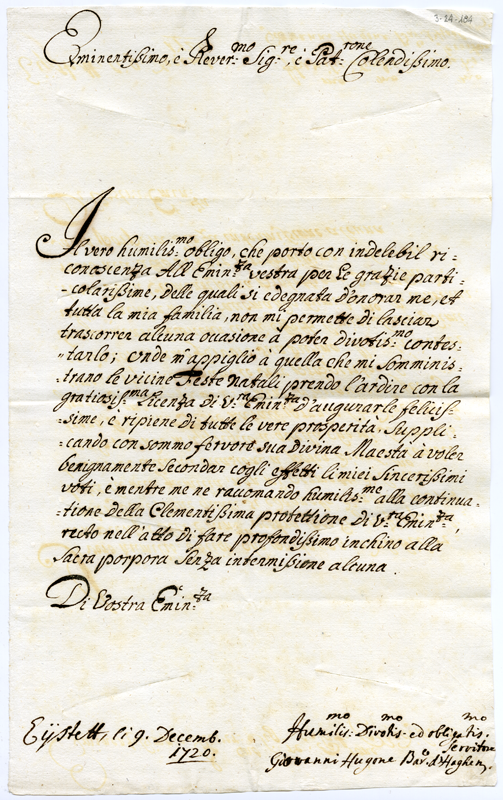 3-24-194
Eminentissimo, è Rever:mo Sig:re, è Pat:rone Colendissimo.
Il vero humilis:mo obligo, che porto con indelebil ri-
-conoscenza All Emin:za vestra per le grazie parti-
-colarissime, delle quali si è degnata d'onorar me, et
tutta la mia familia, non mi permette di lasciar
trascorrer alcuna occasione à poter divotis:mo contes-
-tarlo; Onde m'appiglio à quella che mi somminis-
-trano le vicine Feste Natali prendo l'ardire con la
gratiosiss:ma licenza di V:ra Emin:za d'augurarle felicis-
-sime, è ripiene di tutte le vere prosperità. Suppli-
-cando con sommo fervore sua Divina Maesta à voler
benignamente secondar cogli effetti li miei sincerissimi
voti, è mentre me ne raccomando humilis:me alla continua-
-tione della Clementissima protettione di V:ra Emin:za,
resto nell'atto di fare profondissimo inchino alla
Sacra porpora senza intermissione alcuna.
Di Vostra Emin:za
Eijstett, li 9. Decemb.
1720.
Humilis:mo Divotis:mo ed obligatis:mo
servitore
Giovanni Hugone Bar: d'Haghen.